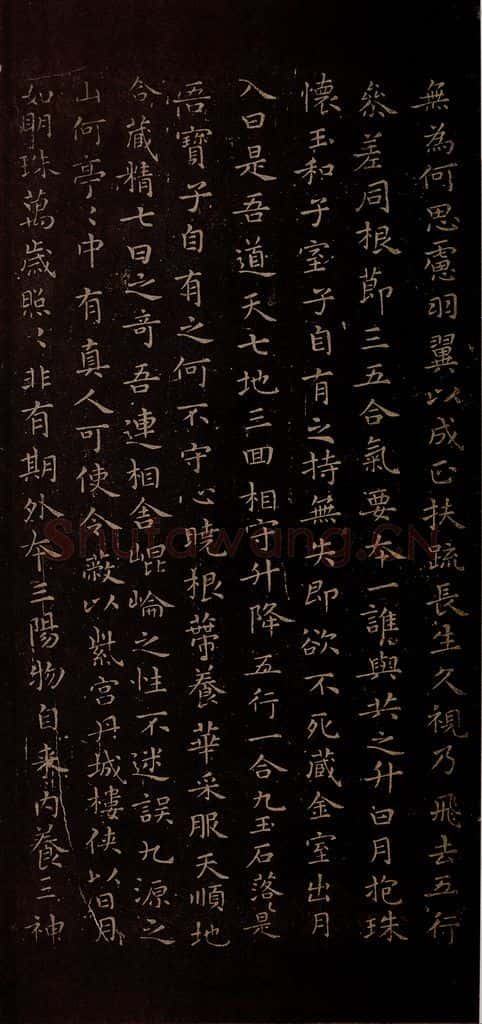 無為何思慮羽翼以成正扶疏長生久視乃飛去五行
叅差同根節三五合氣要本一誰與共之升日月抱珠
懷玉和子室子自有之持無失即欲不死藏金室出月
入日是吾道天七地三回相守升降五行一合九玉石落〻是
吾寶子自有之何不守心曉根蔕養華采服天順地
合藏精七日之奇吾連相舍崐崘之性不迷誤九源之
山何亭〻中有真人可使令蔽以紫宮丹城樓俠以日月
如明珠萬歲照〻非有期外本三陽物自来內養三神
Shufawang.CN